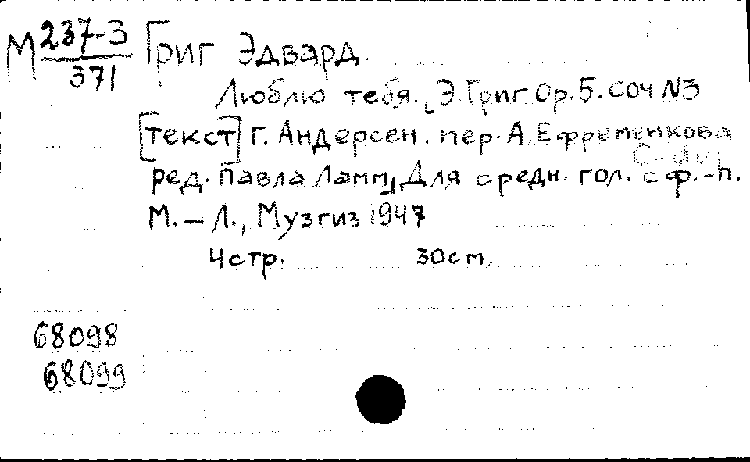 М 237-3/371 Григ Эдвард.
Люблю тебя. Э. Григ. Ор. 5. соч №3
[текст] Г. Андерсен. пер. А. Ефременкова
ред. Павла Ламм, Для средн. гол. с ф.-п.
М.–Л., Музгиз 1947
4стр. 30см.
68098
68099